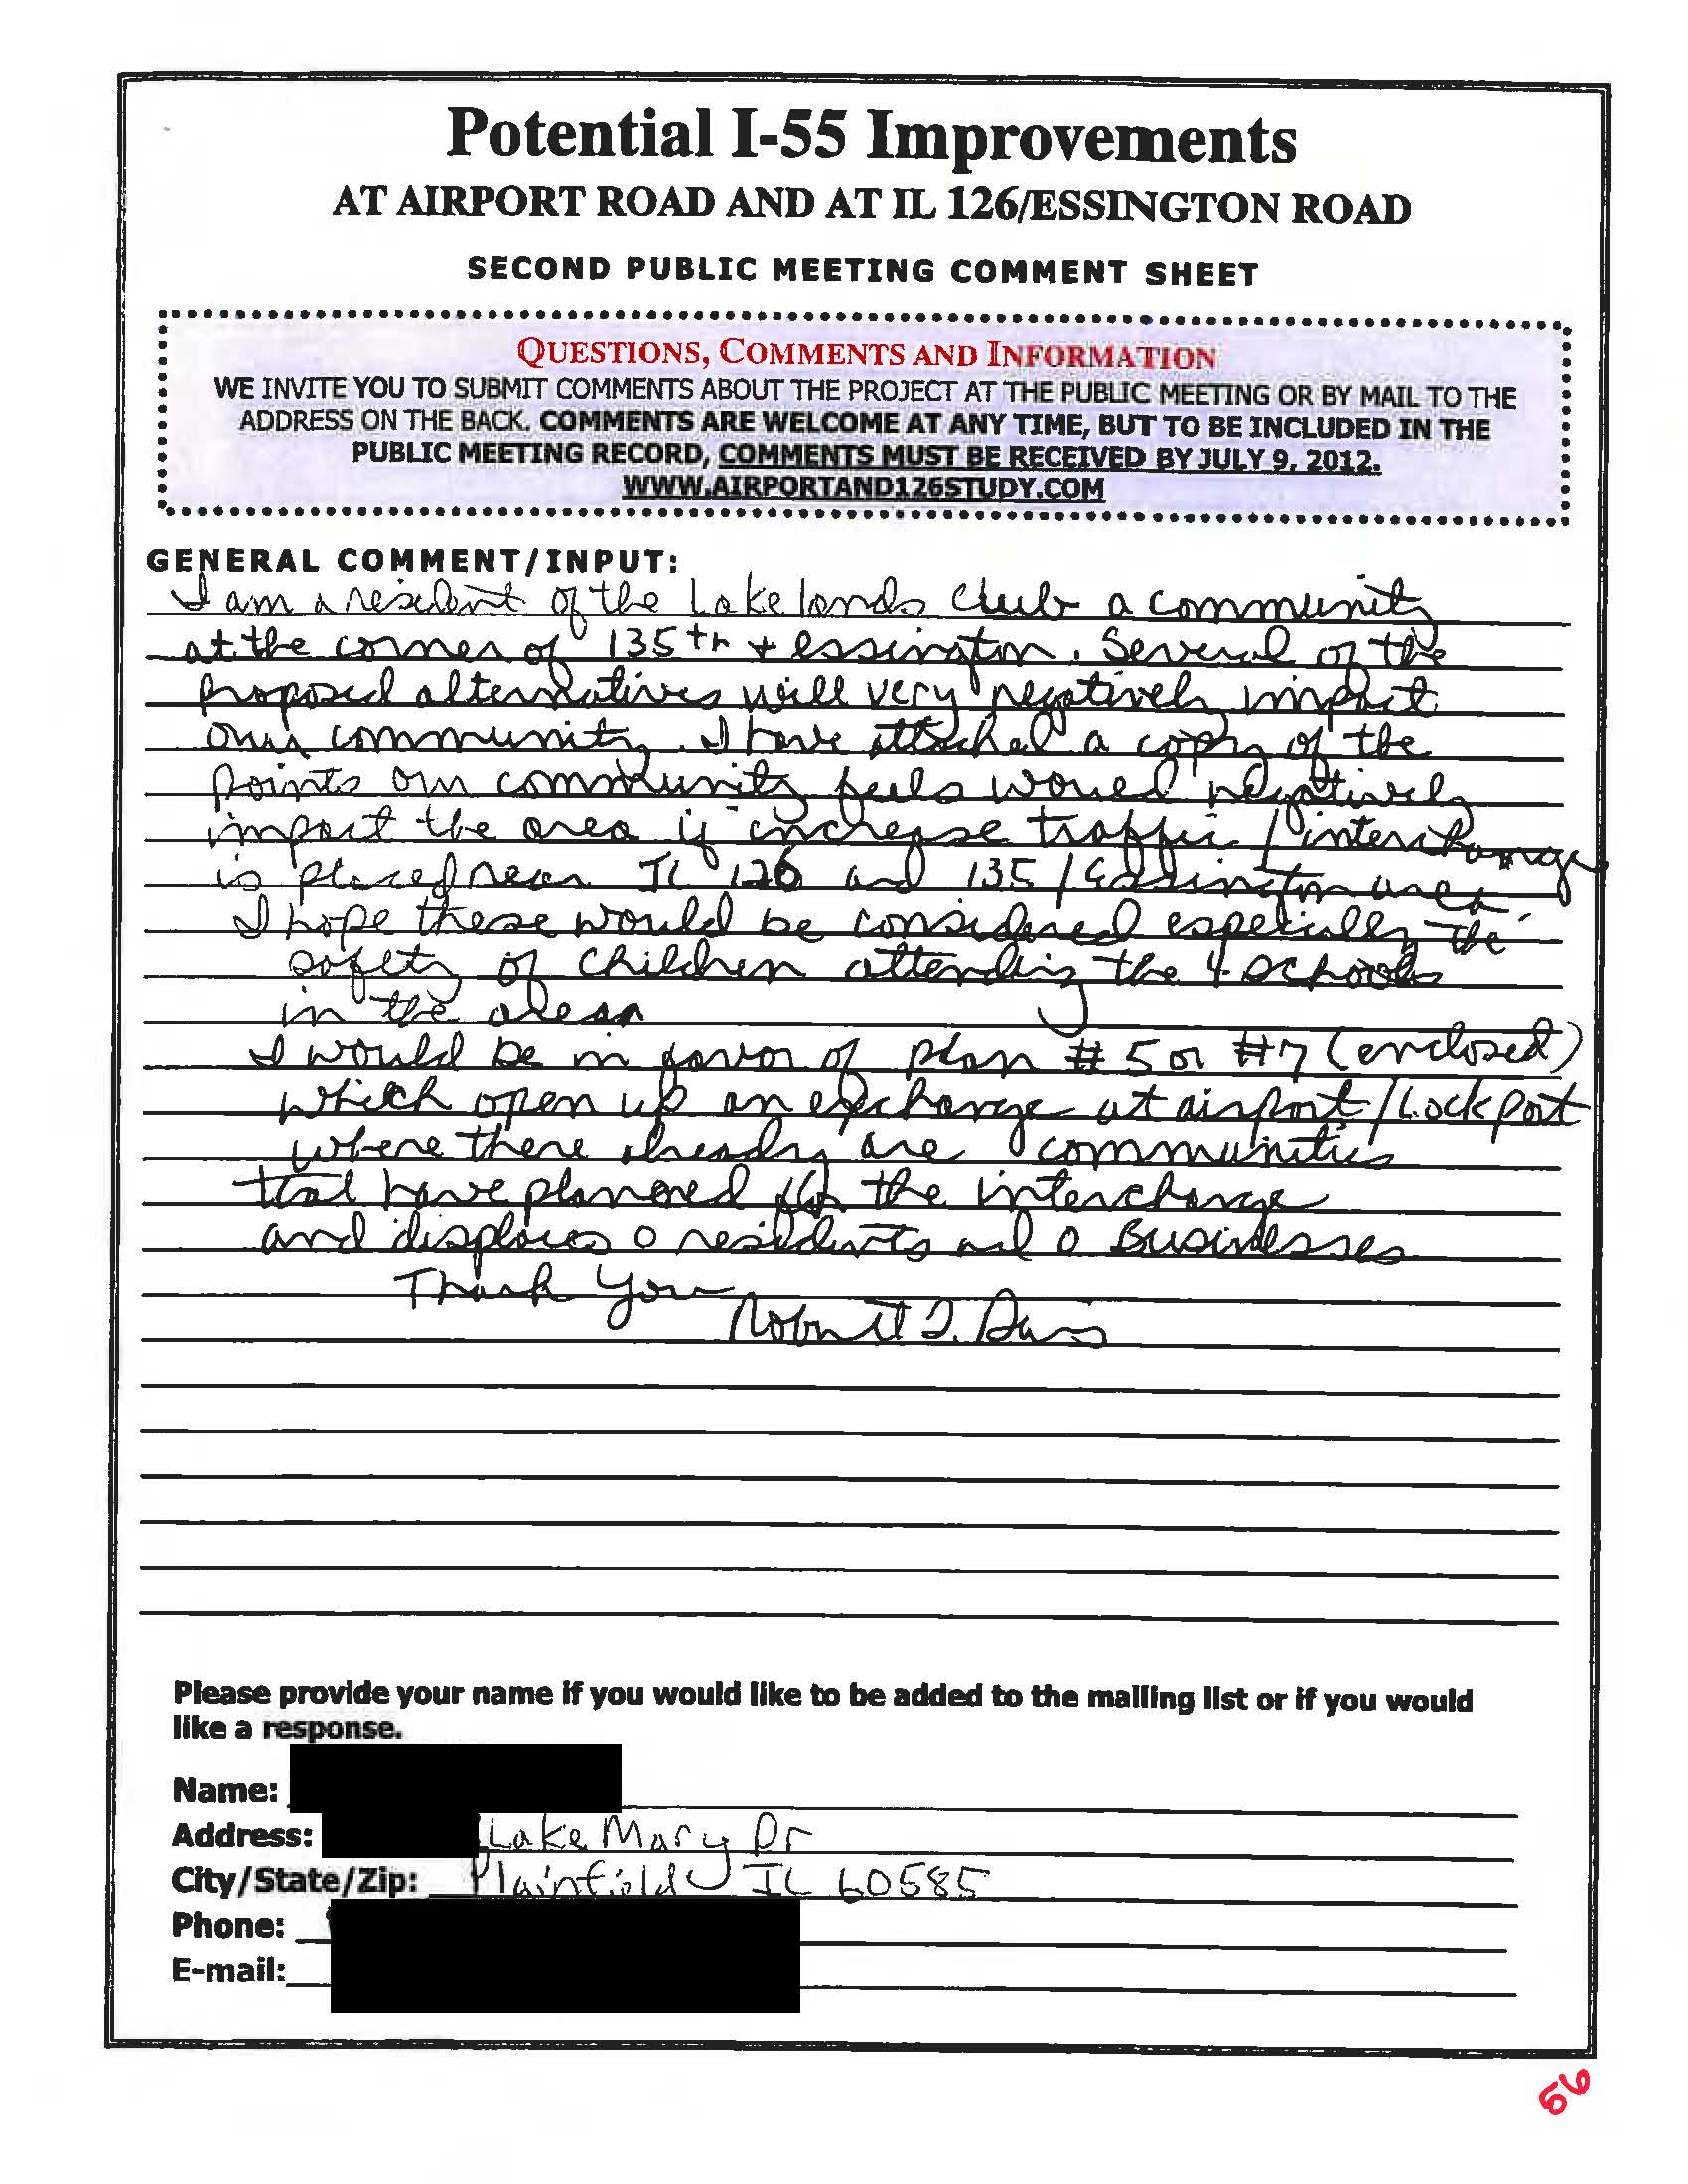 Potential I-55 Improvements
AT AIRPORT ROAD AND AT IL 126/ESSINGTON ROAD
SECOND PUBLIC MEETING COMMENT SHEET
QUESTIONS, COMMENTS AND INFORMATION
WE INVITE YOU TO SUBMIT COMMENTS ABOUT THE PROJECT AT THE PUBLIC MEETING OR BY MAIL TO THE
ADDRESS ON THE BACK. COMMENTS ARE WELCOME AT ANY TIME, BUT TO BE INCLUDED IN THE
PUBLIC MEETING RECORD, COMMENTS MUST BE RECEIVED BY JULY 9, 2012.
WWW.AIRPORTAND126STUDY.COM
GENERAL COMMENT/INPUT:
I am a resident of the Lakelands Club a community
at the corner of 135th + essington. Several of the
proposed alternatives will very negatively impact
our community. I have attached a copy of the
points our community feels would negatively
impact the area if increase traffic / interchange
is placed near IL 126 and 135 / Essington area.
I hope these would be considered especially the
safety of children attending the 4 schools
in the area
I would be in favor of plan # 5 or #7 (enclosed)
which open up an exchange at airport/Lockport
where there already are communities
that have planned for the interchange
and displaces 0 residents and 0 Businesses
Thank You
Robert J. Davis
Please provide your name if you would like to be added to the mailing list or if you would
like a response.
Name:
Address: Lake Mary Dr
City/State/Zip: Plainfield IL 60585
Phone:
E-mail:
56